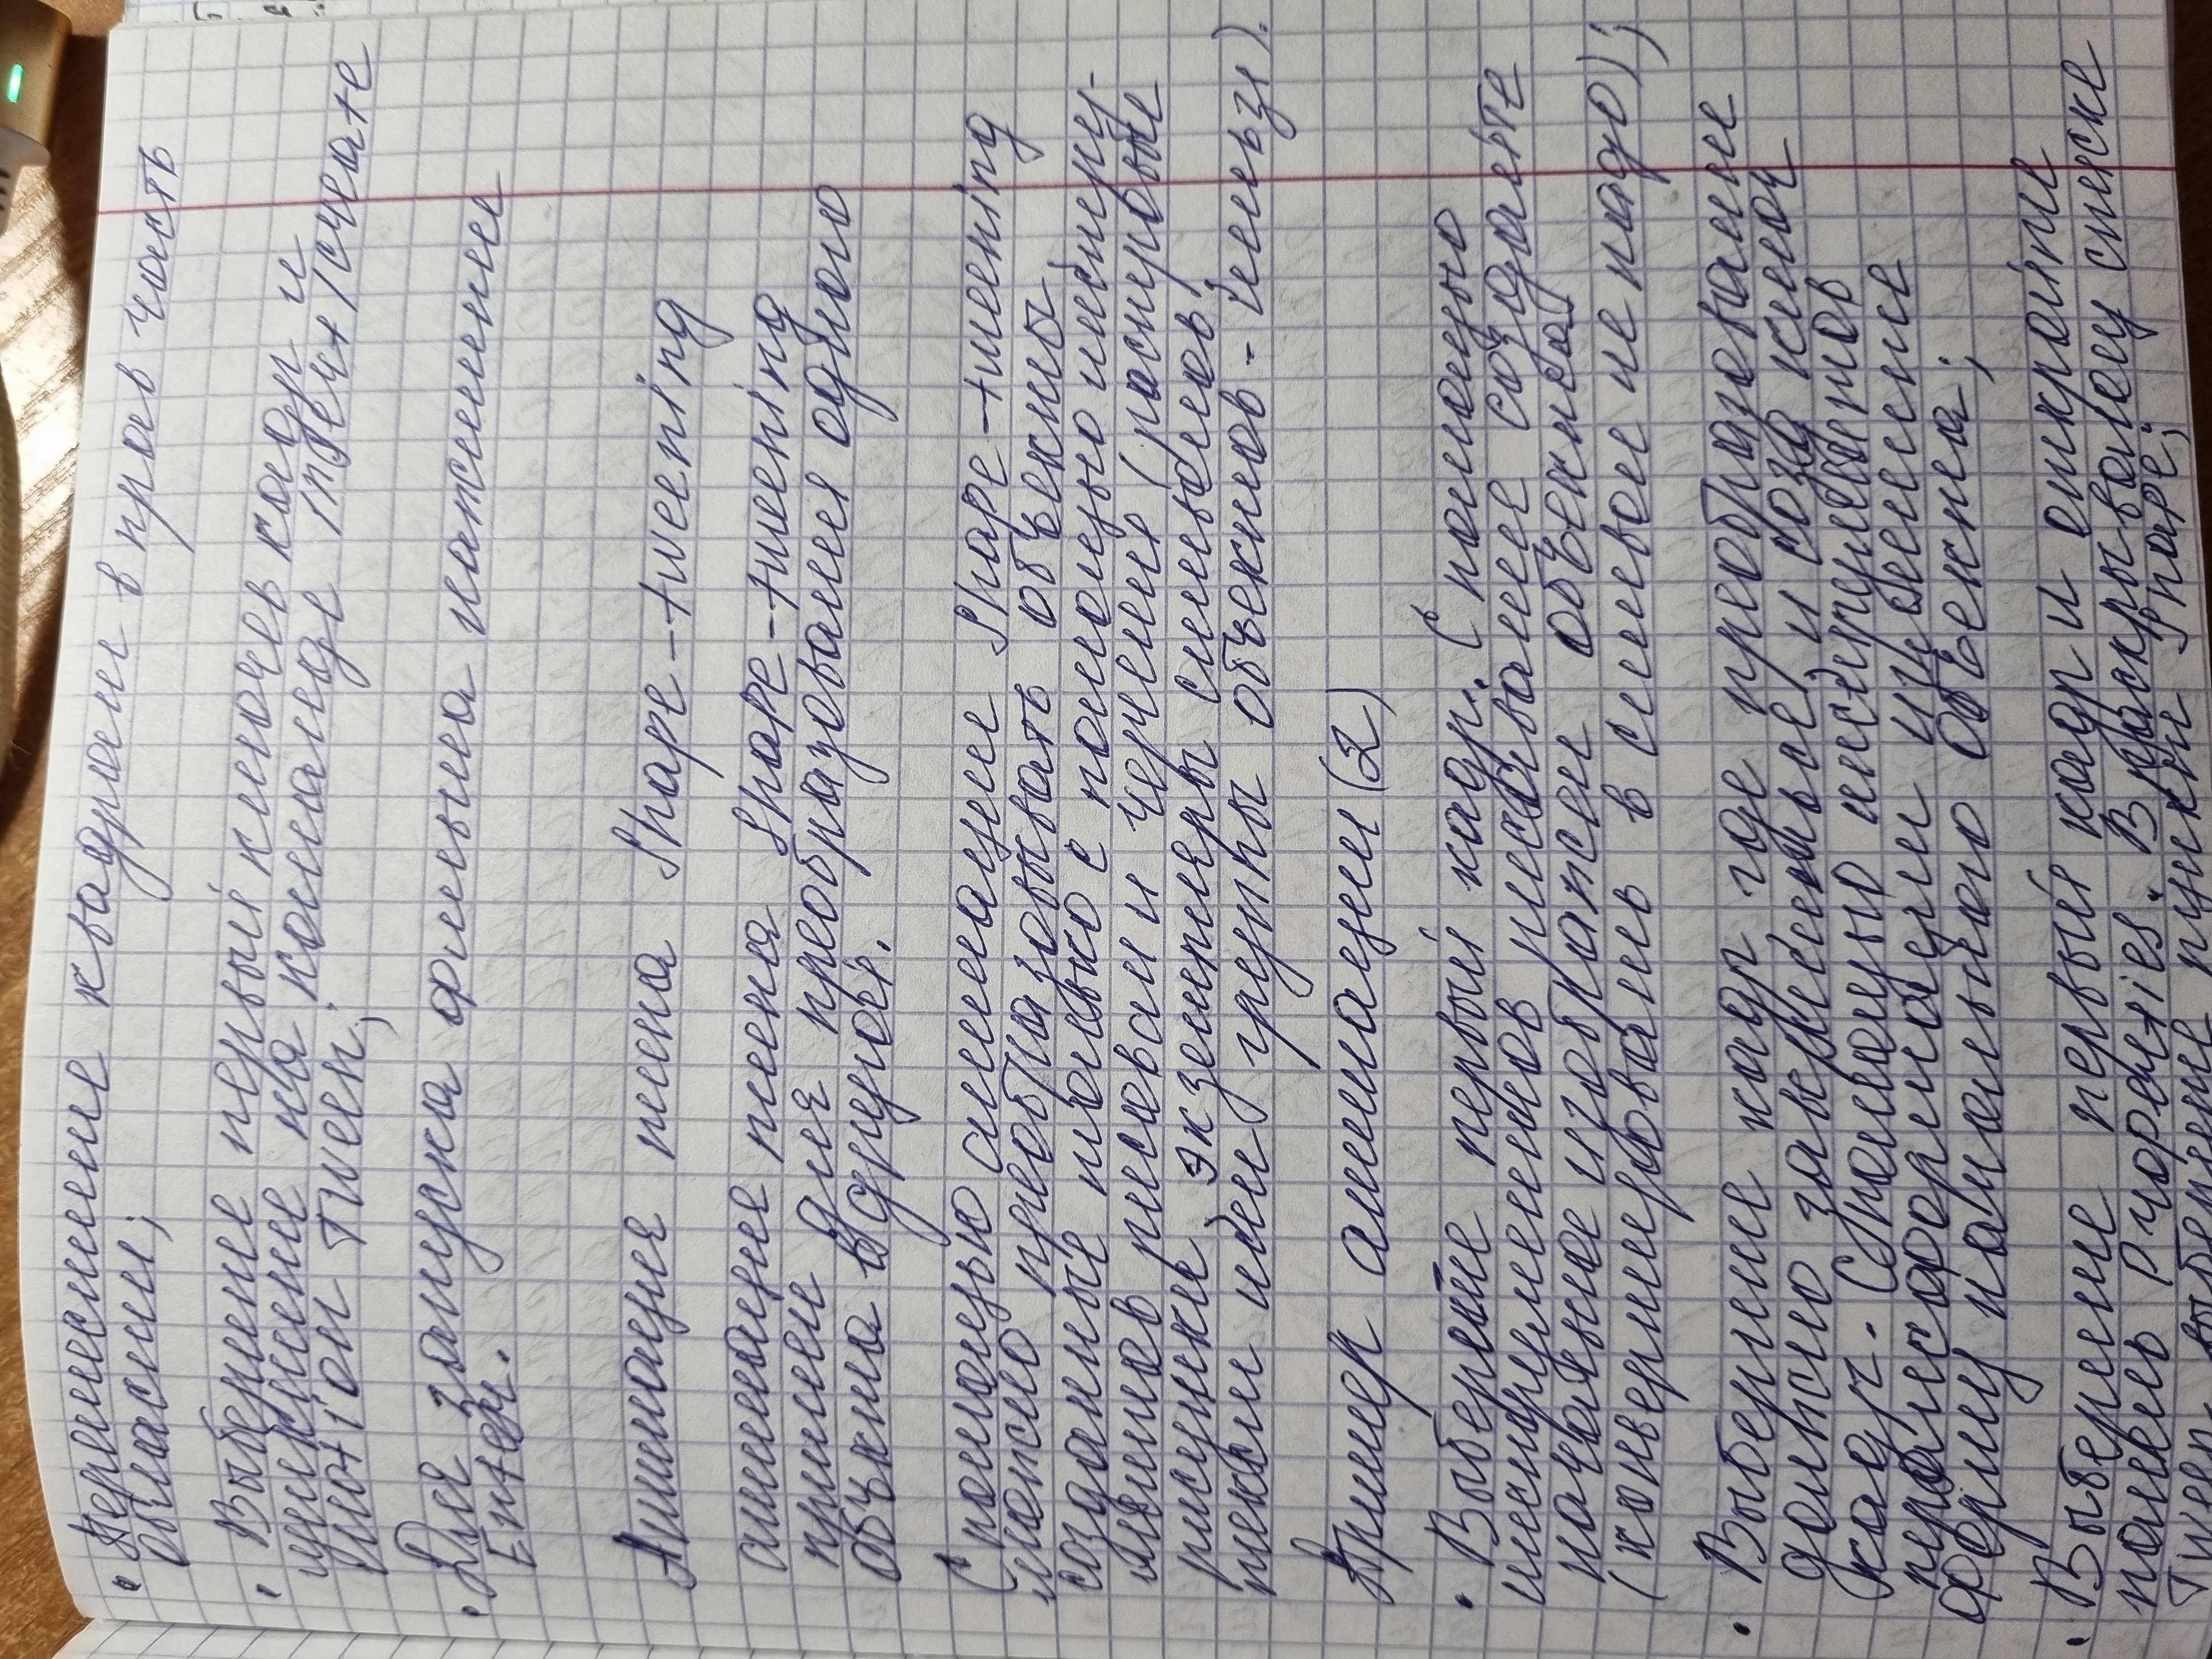 • Переместите квадрат в прав часть
области;
• Выберите первый ключев кадр и
щелкните на команде Insert/create
motion Tween;
• Для запуска фильма нажмите
Enter.
Анимация типа Shape-tweening
анимация типа Shape-tweening
примен для преобразования одного
объкта в другой.
С помощью анимации Shape-tweening
можно преобразовывать объекты,
созданные только с помощью инстру-
ментов рисован и черчения (растровые
рисунки, экземпляры символов,
текст или группы объектов - нельзя).
Пример анимации (2)
• Выберете первый кадр. С помощью
инструментов рисования создайте
начальное изображен объекта
(конвертировать в символ не надо);
• Выберите кадр, где преобразование
должно завершиться, и созд ключ
кадр. С помощью инструментов
трансформации измените
форму начального объекта;
• Выберите первый кадр и откройте
панель Properties. В раскрывающу списке
Tween выберите пункт Shape;